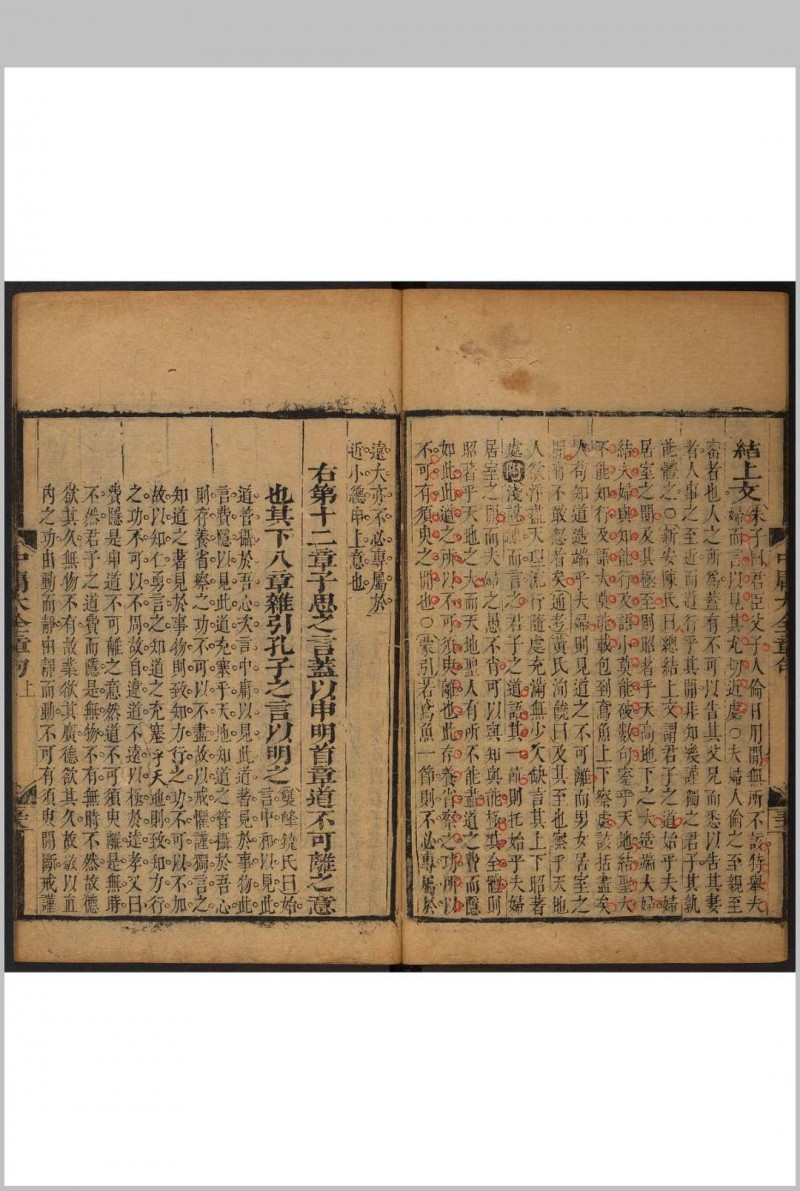 結上文 朱子曰君臣父子人倫日用間無所不該特舉夫
婦而言以見其尤切近處○夫婦人倫之至親至
密者也人之所為蓋有不可以告其父兄而悉以告其妻
者人事之至近而道行乎其間非知幾謹獨之君子其孰
能體之○新安陳氏曰總結上文謂君子之道始乎夫婦
居室之間及其極至則昭著乎天高地下之大造端夫婦
結夫婦與知能行及語小莫能破數句察乎天地結聖人
不能知行及語大莫能載包到鳶魚上下察處該括盡矣
人苟知道造端乎夫婦則見道之不可離而男女居室之
間有不敢忽者矣通考黃氏洵饒曰及其至也察乎天地
人欲淨盡天理流行隨處充滿無少欠缺言其上下昭著
處 淺說總而言之君子之道語其一節則托始乎夫婦
居室之間而夫婦之愚不肖可以與知與能極其全體則
昭著乎天地之大而天地聖人有所不能蓋道之費而隱
如此此道之所以不可須臾離也此存養省察之功所以
不可有須臾之間也○蒙引若鳶魚一節則不必專屬於
遠大亦不必專屬於
近小總申上意也
右第十二章子思之言蓋以申明首章道不可離之意
也其下八章雜引孔子之言以明之 雙峰饒氏曰始
言中和以見此
道管攝於吾心次言中庸以見此道著見於事物此
言費隱以見此道充塞乎天地知道之管攝於吾心
則存養省察之功不可以不盡故以戒懼謹獨言之
知道之著見於事物則致知力行之功不可以不加
故以知仁勇言之知道之充塞乎天地則致知力行
之功不可以不周故自違道不遠以極於達孝又曰
費隱是申道不可離之意然道不可須臾離是無時
不然君子之道費而隱是無物不有無時不然故德
欲其久無物不有故業欲其廣德欲其久故敬以直
內之功由動而靜由靜而動不可有須臾間斷戒謹
中庸大全章句上
中庸大全章句